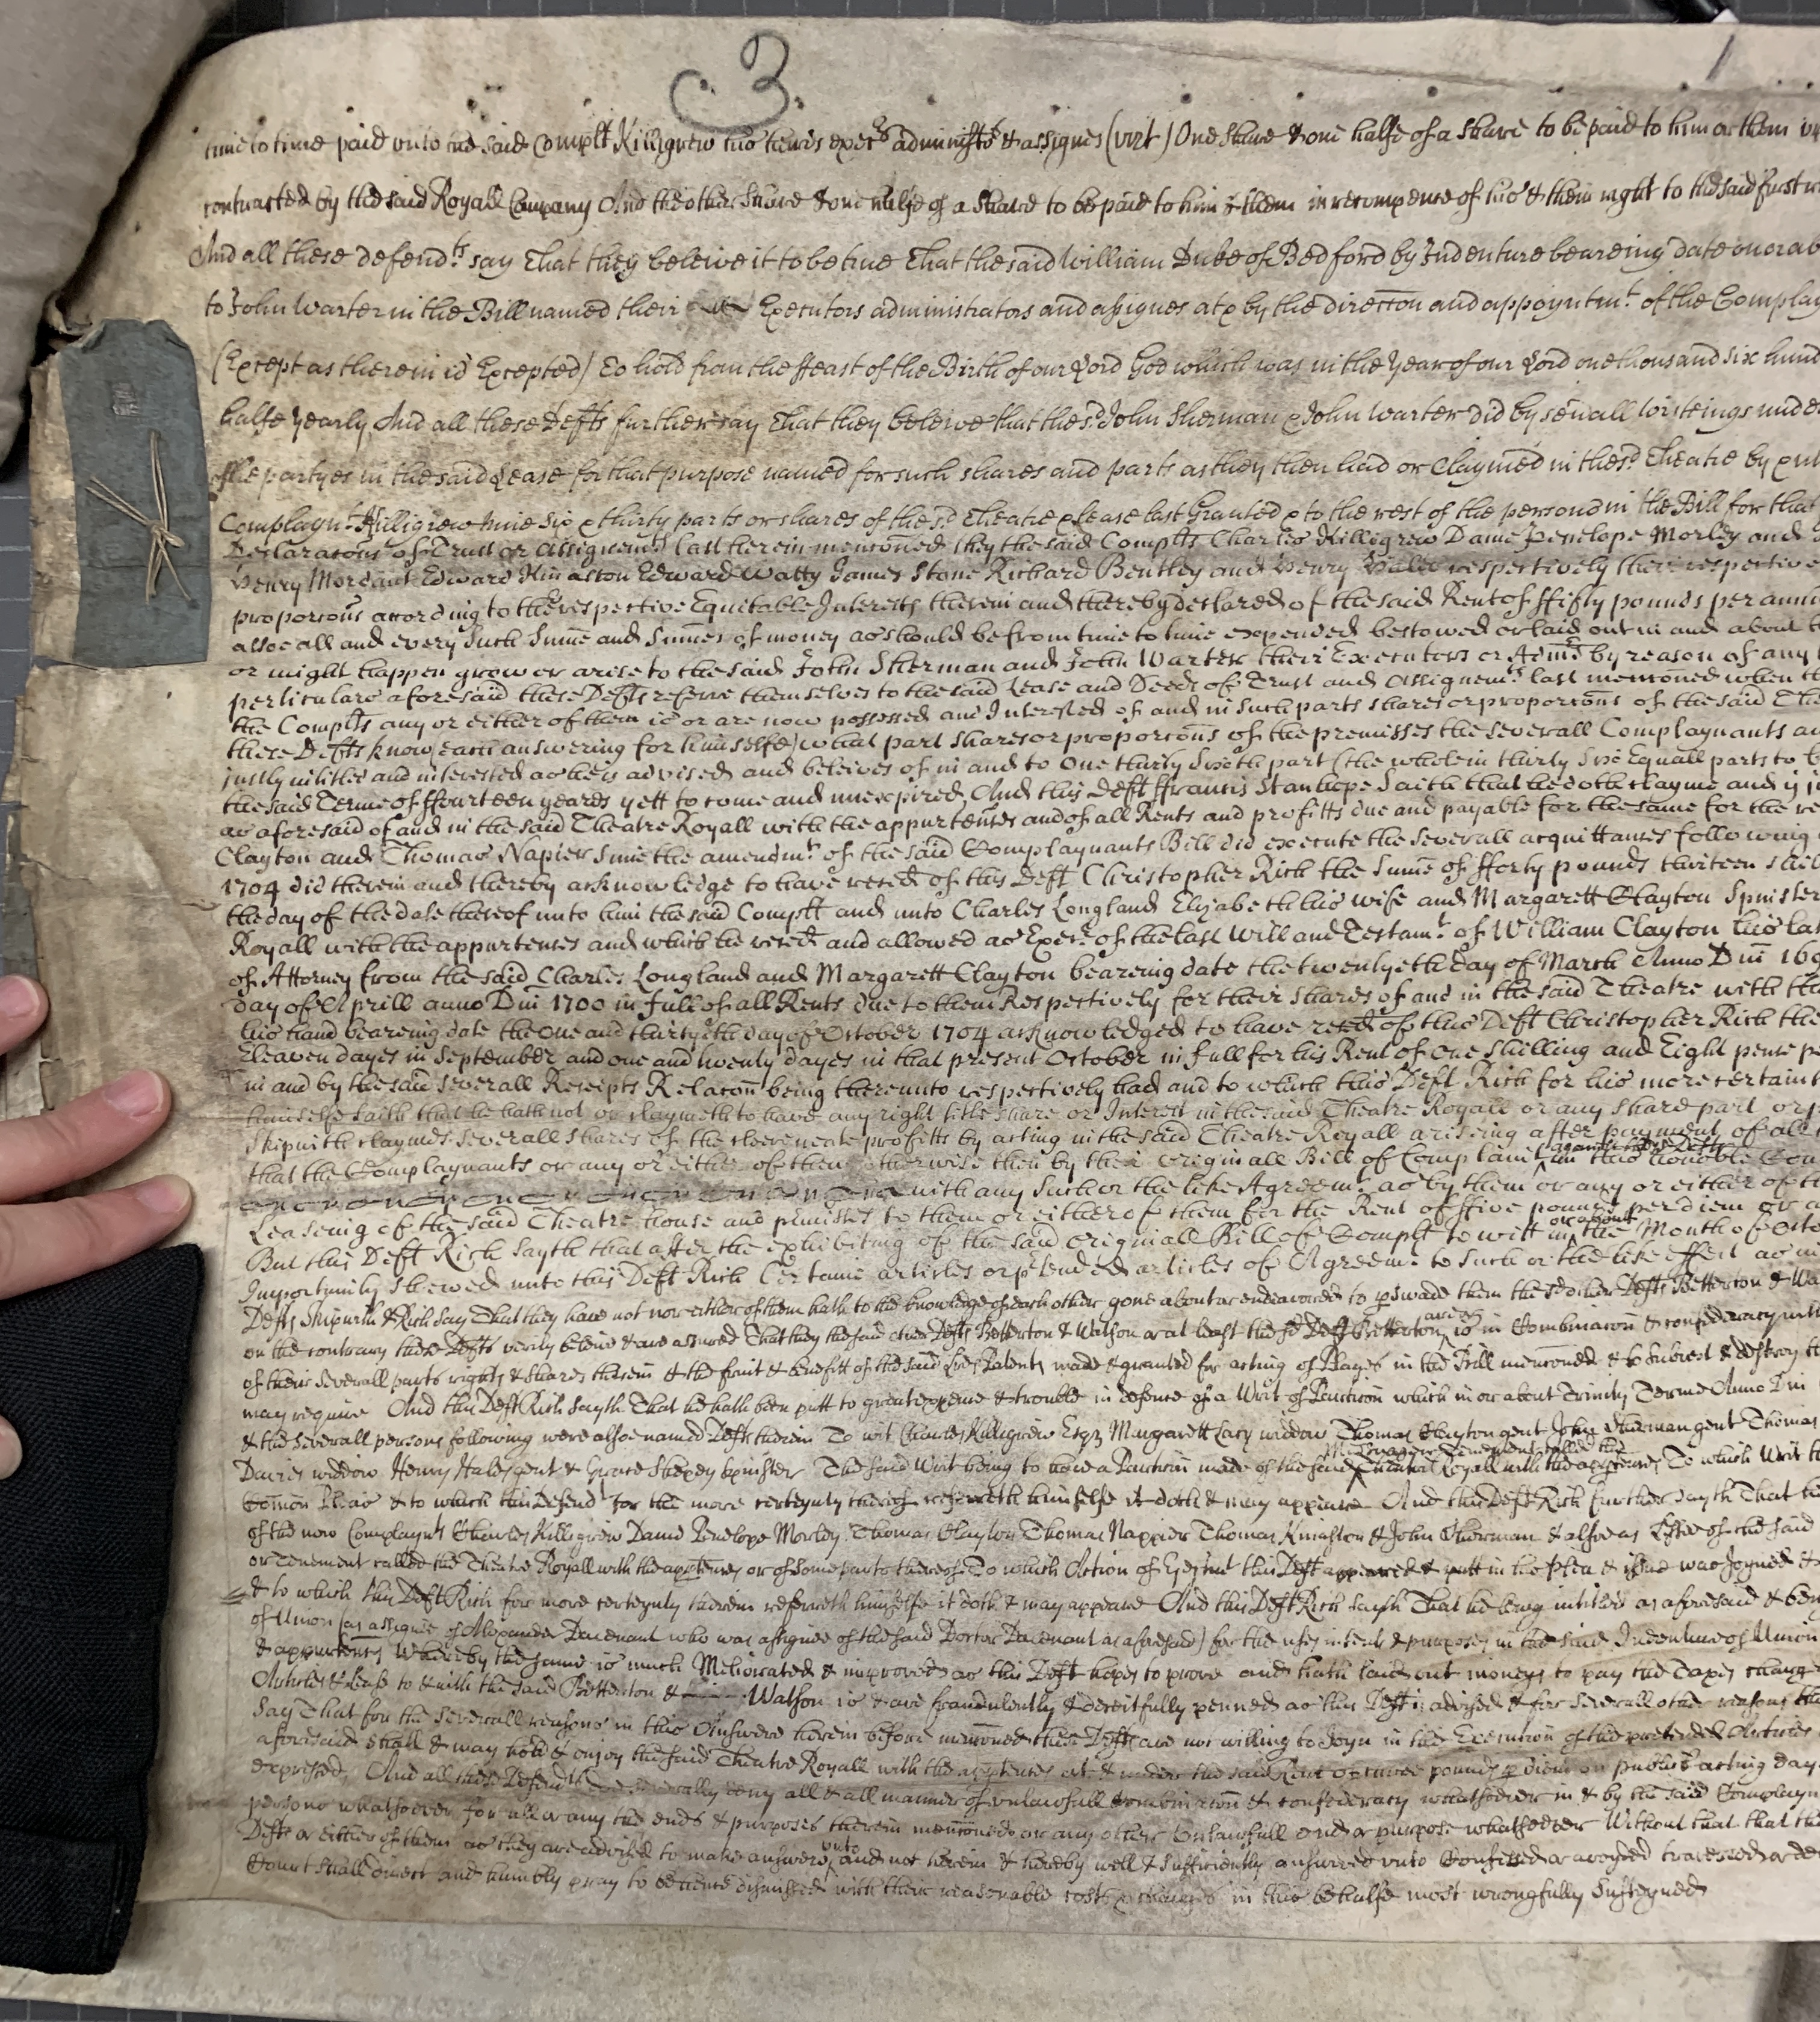 c. 3.
time to time paid unto the said Complt Killigrew his heires exec^rs administ^rs & assignes (vizt) One share & one halfe of a share to be paid to him or them
contracted by the said Royall Company And the other share & one halfe of a share to be paid to him & them in recompence of his & their right to the said first
And all these defend^ts say That they beleive it to be true That the said William Duke of Bedford by Indenture beareing date on or
to John Warter in the Bill named their Executors administrators and assignes at & by the direccon and appoyntm^t of the
(Except as therein is Excepted) To hold from the ffeast of the Birth of our Lord God which was in the Year of our Lord one thousand six
halfe yearly And all these Defts further say That they beleive that the s^d John Sherman & John Warter did by sevall Writeings
the partyes in the said Lease for that purpose named for such shares and parts as they then had or claymed in the s^d Theatre by
Complayn^t Killigrew nine six & thirty parts or shares of the s^d Theatre & lease last Granted & to the rest of the persons in the Bill for that
Declaracons of Trust or Assignem^ts last herein menconed they the said Complts Charles Killigrew Dame Penelope Morley and
Henry Mordant Edward Kinaston Edward Watty James Stone Richard Bentley and Henry respectively their respective
proporcons according to the respective Equitable Interests therein and thereby declared of the said Rent of ffifty pounds per
alsoe all and every such Sume and Sumes of money as should be from time to time expended bestowed or laid out in and about
or might happen grow or arise to the said John Sherman and John Warter their Executors or Adm^rs by reason of any
perticulars aforesaid these Defts referre themselves to the said Lease and Deeds of Trust and Assignem^t last menconed when
the Complts any or either of them is or are now possessed and Interested of and in such parts shares or proporcons of the said
these Defts know (each answering for himselfe) what part shares or proporcons of the premisses the severall Complaynants
justly intitled and interested as he is advised and beleives of in and to One thirty Sixth part (the whole in thirty Six Equall parts to
the said Terme of ffourteen yeares yett to come and unexpired And this Deft ffrancis Stanhope Saith that he doth clayme and
as aforesaid of and in the said Theatre Royall with the appurtences and of all Rents and profitts due and payable for the same for the
Clayton and Thomas Napier since the amendm^t of the said Complaynants Bill did execute the severall acquittances following
1704 did therein and thereby acknowledge to have reced of this Deft Christopher Rich the Sume of fforty pounds thirteen
the day of the date thereof unto him the said Complt and unto Charles Longland Elizabeth his wife and Margarett Clayton Spinster
Royall with the appurtences and which he reced and allowed as Exec^r of the last Will and Testam^t of William Clayton his
of Attorney from the said Charles Longland and Margarett Clayton beareing date the twentyeth day of March Anno Dni
day of Aprill anno Dni 1700 in full of all Rents due to them Respectively for their Shares of and in the said Theatre with
his hand beareing date the One and thirtyeth day of October 1704 acknowledged to have reced of this Deft Christopher Rich the
Eleaven dayes in September and one and twenty dayes in that present October in full for his Rent of One Shilling and Eight pence
in and by the said severall Receipts Relacon being thereunto respectively had and to which this Deft Rich for his more
himselfe saith that he hath not or claymeth to have any right title share or Interest in the said Theatre Royall or any share part
Skipwith claymes severall shares of the cleere profitts by acting in the said Theatre Royall ariseing after payment of all
that the Complaynants or any or either of them otherwise then by their Originall Bill of Complaint against these Defts in this honoble
with any Such or the like Agreem^t as by them or any or either of
Leaseing of the said Theatre house and premisses to them or either of them for the Rent of ffive pounds per diem or
But this Deft Rich Sayth that after the exhibiting of the said Originall Bill of Complt to witt in or about the Month of
Importunity shewed unto this Deft Rich Certaine articles or ptended articles of Agreem^t to such or the like effect as
Defts Skipwith & Rich say That they have not nor either of them hath to the knowledge of each other gone about or endeavored to pswade them the other Defts Betterton &
on the contrary these Defts verily beleive & are assured That they the said other Defts Betterton & Watson or at least the s^d Deft Betterton are or is in Combinacon & confederacy
of their severall parts rights & shares therein & the fruit & benefitt of the said Lres Patents made & granted for acting of Playes in the Bill menconed & to Subvert & destroy
may require And this Deft Rich Sayth That he hath been putt to great expence & trouble in defence of a Writ of Particon which in or about Trinity Terme Anno Dni
& the severall persons following were alsoe named Defts therein To wit Charles Killigrew Esq^r Margarett Lacy widdow Thomas Clayton gent John Sherman gent Thomas
Davies widdow Henry Hales gent & Grace Shepey Spinster The said Writ being to have a Particon made of the said Messuage or Tenement called the Theatre Royall with the appurtences To which Writ
Comon Pleas & to which this Defend^t for the more certeynty thereof referreth himselfe it doth & may appeare And this Deft Rich further sayth That
of the now Complayn^ts Charles Killigrew Dame Penelope Morley Thomas Clayton Thomas Nappier Thomas Kinaston & John Sherman & alsoe as of the said
or Tenement called the Theatre Royall with the apptences or of some parts thereof To which Action of Ejectmt this Deft appeared & putt in his Plea & issue was Joyned
& to which this Deft Rich for more certeynty therein referreth himselfe it doth & may appeare And this Deft Rich Sayth That he being intitled as aforesaid
of Union (as assignee of Alexander Davenant who was assignee of the said Doctor Davenant as aforesaid) for the uses intents & purposes in the said Indenture of Union
& appurtences Whereby the same is much Meliorated & improved as this Deft hopes to prove and hath laid out moneys to pay the Taxes
Articles & Lease to & with the said Betterton & Watson is & are fraudulently & deceitfully penned as this Deft is advised & for severall other reasons
Say That for the severall reasons in this Answere herein before menconed these Defts are not willing to Joyn in the Execution of the pretended Articles
aforesaid shall & may hold & enjoy the said Theatre Royall with the apptences at & under the said Rent of three pounds p diem on publick acting
expressed, And all these Defend^ts doe severally deny all & all manner of unlawfull combinacon & confederacy whatsoever in & by the said
persons whatsoever for all or any the ends & purposes therein menconed or any other Unlawfull end or purpose whatsoever Without that that
Defts or Either of them as they are advised to make answere unto and not herein & hereby well & sufficiently answered unto Confessed or avoyded traversed or
Court shall direct and humbly pray to be hence dismissed with their reasonable costs & charges in this behalfe most wrongfully Susteyned